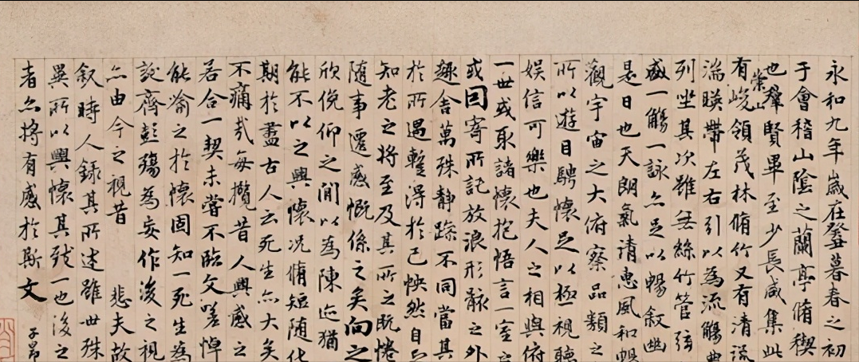 永和九年歲在癸丑暮春之初
于會稽山陰之蘭亭脩稧
也羣賢畢至少長咸集此
有崇山峻領茂林脩竹又有清流
湍暎帶左右引以為流觴曲
列坐其次雖無絲竹管弦
盛一觴一詠亦足以暢敘幽
是日也天朗氣清惠風和暢
觀宇宙之大俯察品類之
所以遊目騁懷足以極視聽
娛信可樂也夫人之相與俯
一世或取諸懷抱悟言一室
或因寄所託放浪形骸之外
趣舍萬殊靜躁不同當其
於所遇蹔得於己怏然自
知老之將至及其所之既惓
隨事遷感慨係之矣向之
欣俛仰之閒以為陳迹猶
能不以之興懷況脩短隨化
期於盡古人云死生亦大矣
不痛哉每攬昔人興感之
若合一契未嘗不臨文嗟悼
能喻之於懷固知一死生為
誕齊彭殤為妄作後之視
亦由今之視昔 悲夫故
敘時人錄其所述雖世殊
異所以興懷其致一也後之
者亦將有感於斯文
子昂